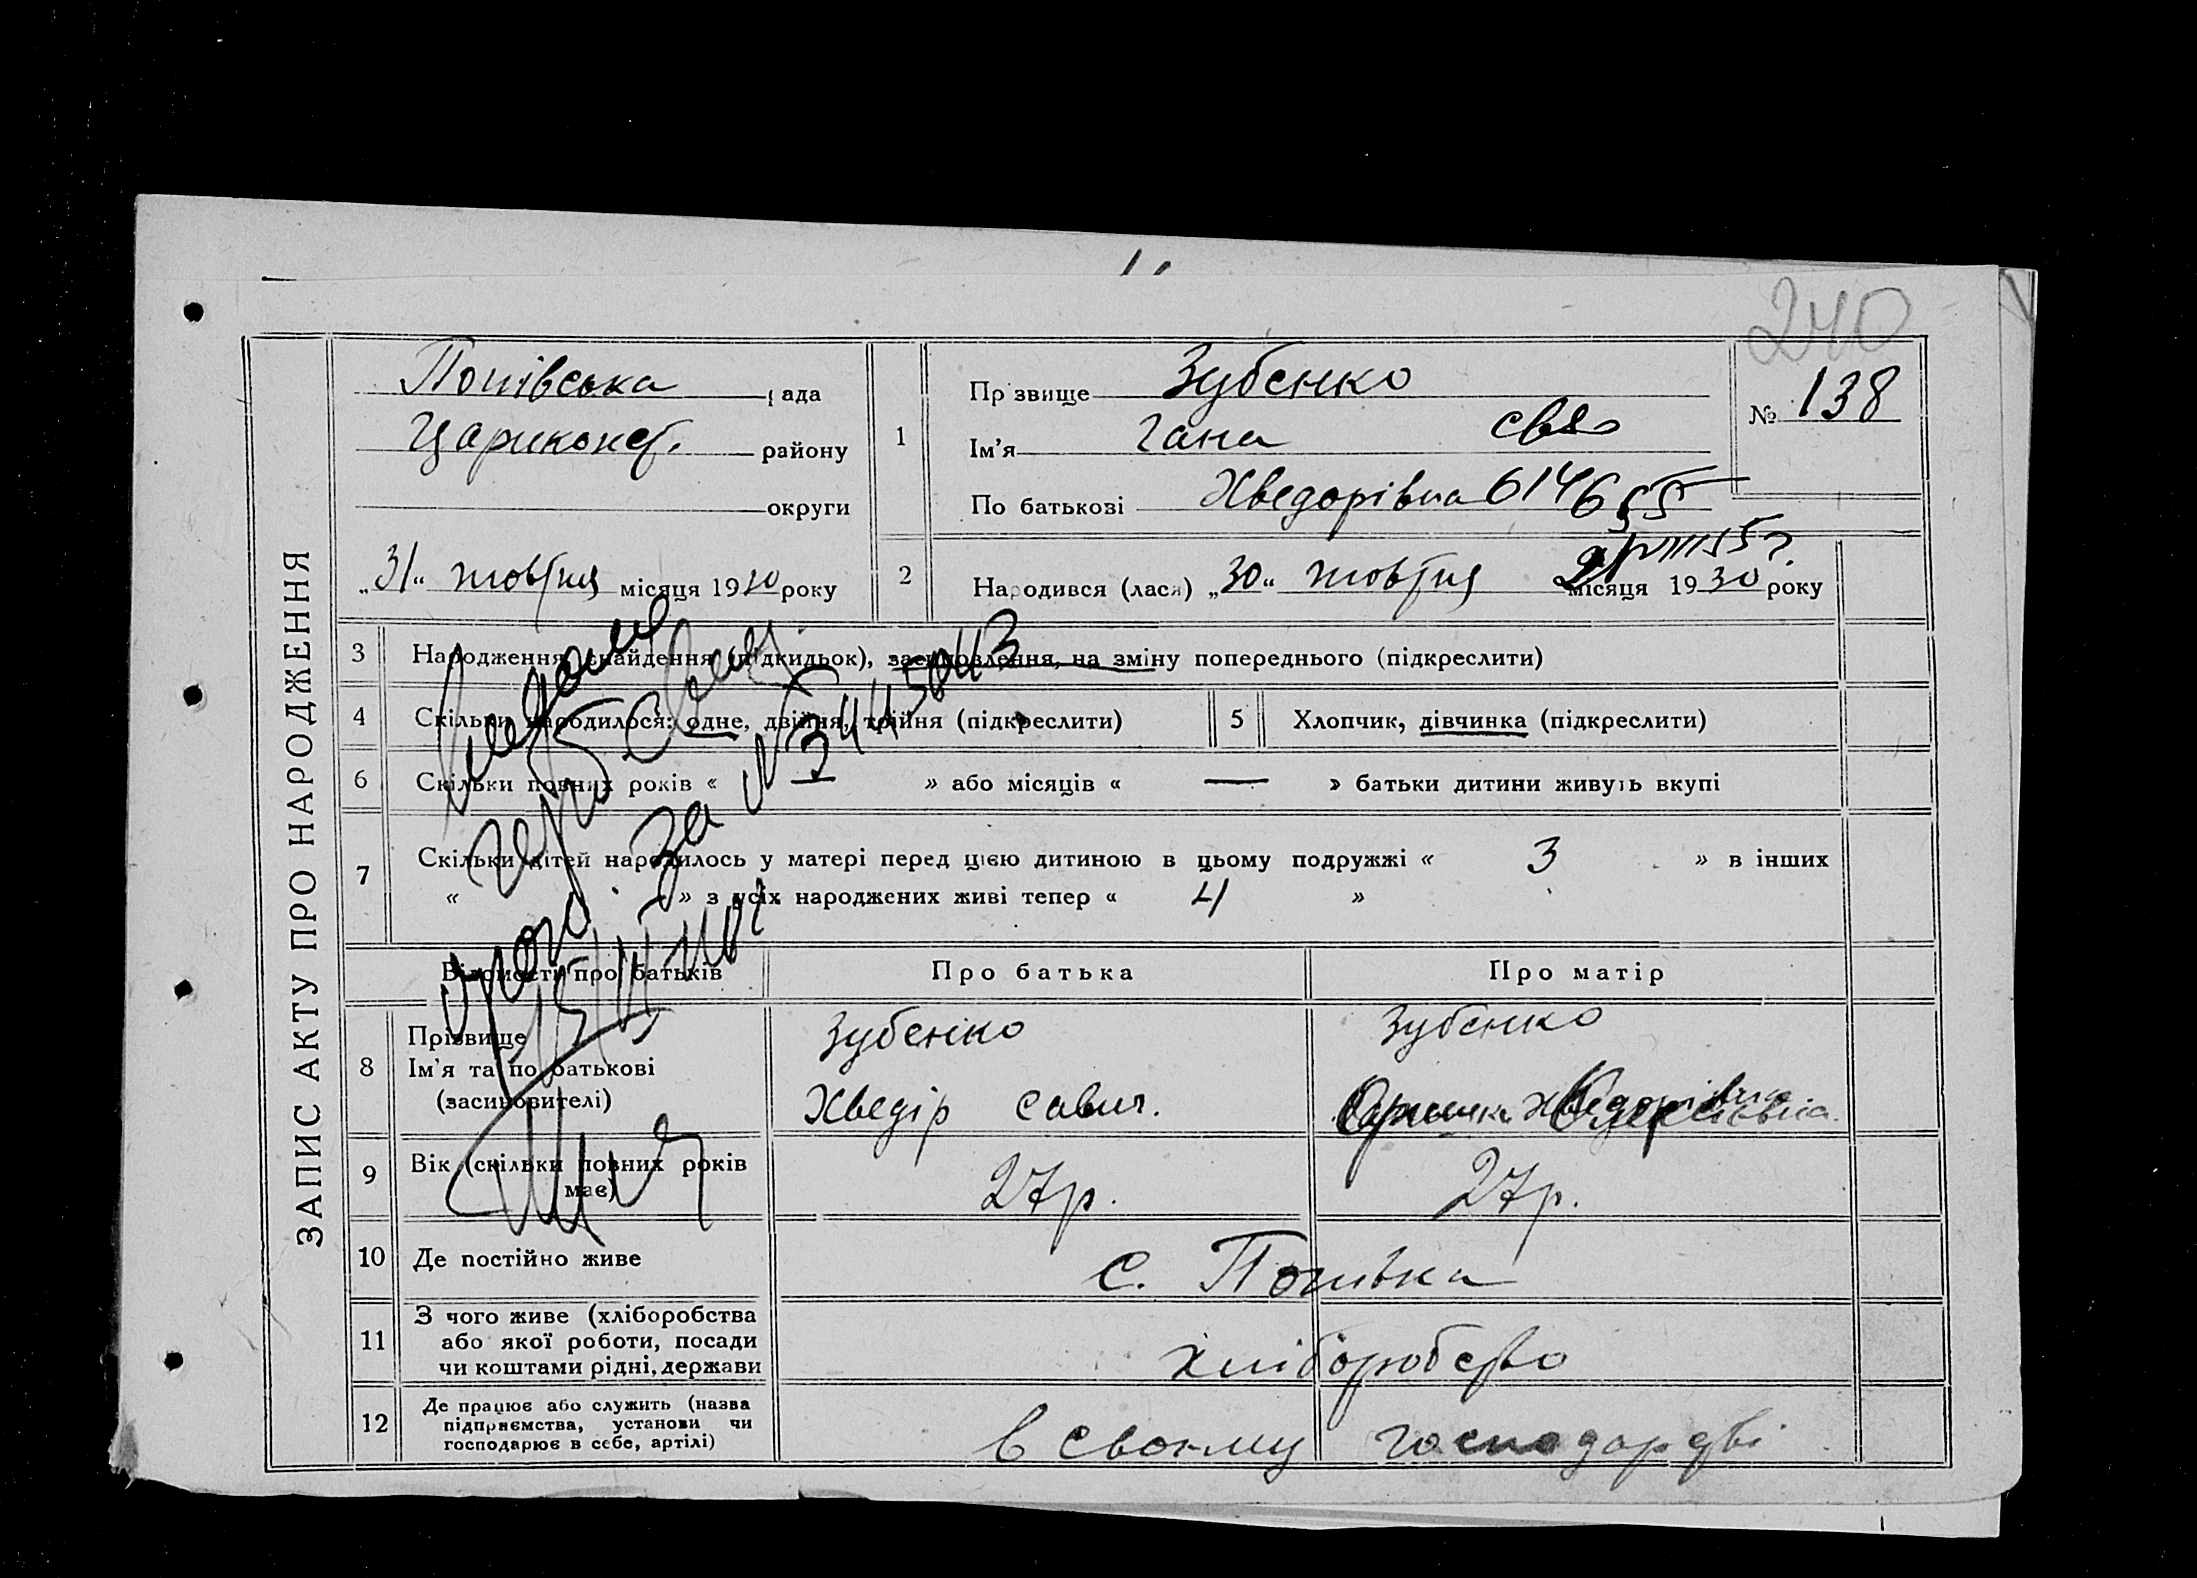 240
ЗАПИС АКТУ ПРО НАРОДЖЕННЯ
Попівська рада
району
округи
„31“ жовтня місяця 1930 року
1
Прізвище Зубенко
Ім'я Гана
По батькові Хведорівна 614655
№ 138
2
Народився (лася) „30“ жовтня місяця 1930 року
3 Народження, знайдення (підкидьок), засиновлення, на зміну попереднього (підкреслити)
4 Скільки народилося: одне, двійня, трійня (підкреслити)
5 Хлопчик, дівчинка (підкреслити)
6 Скільки повних років « — » або місяців « — » батьки дитини живуть вкупі
7 Скільки дітей народилось у матері перед цією дитиною в цьому подружжі « 3 » в інших
« » з усіх народжених живі тепер « 4 »
за № 3445043
Відомості про батьків
Про батька
Про матір
8 Прізвище
Ім'я та по батькові
(засиновителі)
Зубенко
Хведір Савич.
Зубенко
9 Вік (скільки повних років має)
27р.
27р.
10 Де постійно живе
с. Попівка
11 З чого живе (хліборобства
або якої роботи, посади
чи коштами рідні, держави
хліборобство
12 Де працює або служить (назва
підприємства, установи чи
господарює в себе, артілі)
в своєму господарстві